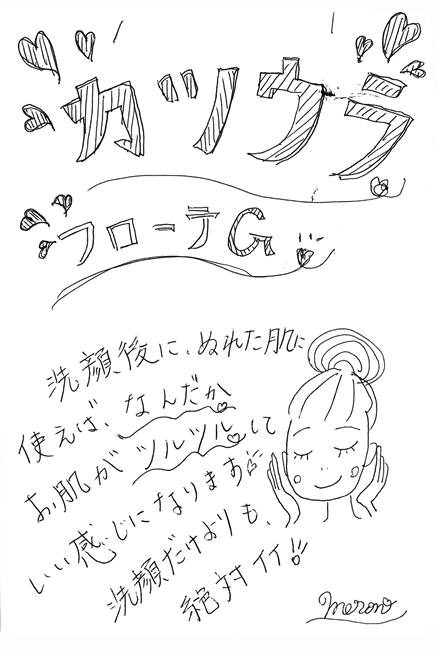 ガツウラ
フローテG
洗顔後に、ぬれた肌に
使えば、なんだか
お肌がツルツルして
いい感じになりますよ
洗顔だけよりも、
絶対イイ!!
merono